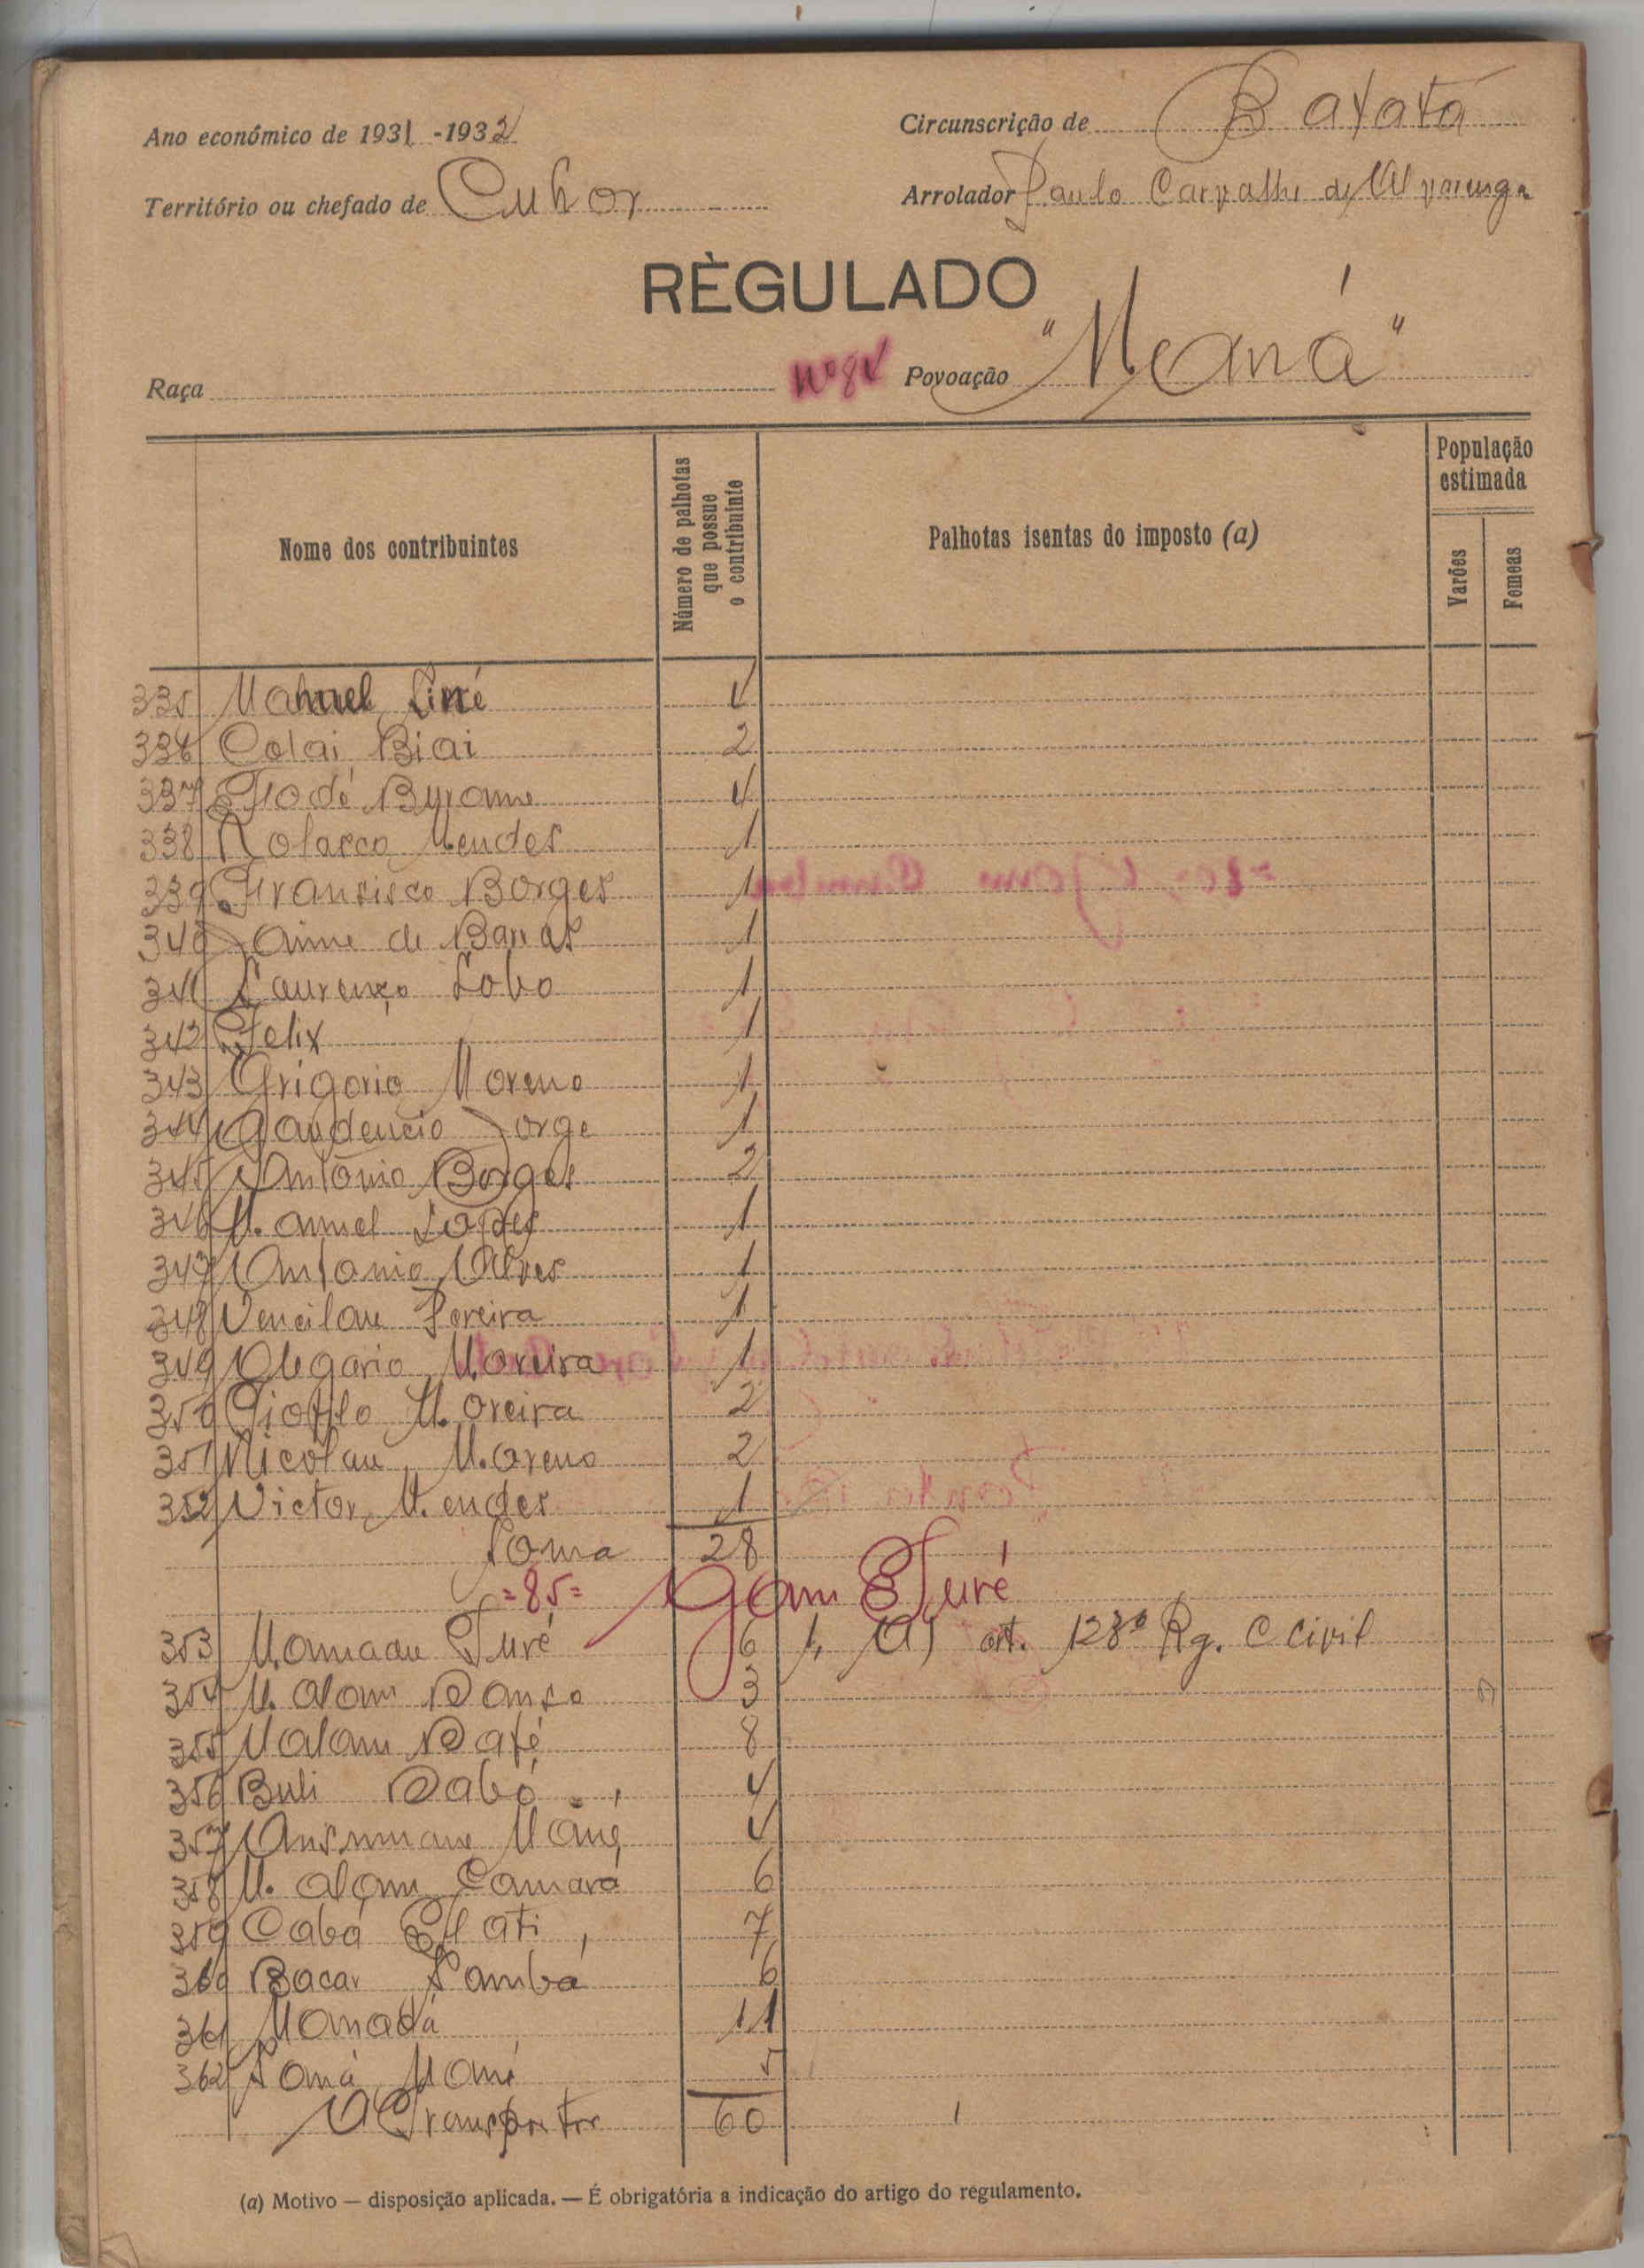 Ano económico de 1931-1932
Circunscrição de Bafatá
Território ou chefado de Cuhor
Arrolador Paulo Carvalho de Alvarenga
RÈGULADO
Raça nº 84 Povoação "Meaná"
Nome dos contribuintes
Número de palhotas que possue o contribuinte
Palhotas isentas do imposto (a)
População estimada
Varões
Femeas
335 Manuel 4
336 Colai Biai 2
337 4
338 Nolasco Mendes 1
339 Fransisco Borges 1
340 Jaime de Barros 1
341 Laurenço Lobo 1
342 Felix 1
343 Grigorio Moreno 1
344 Gaudencio Jorge 1
345 António Borges 2
346 Manuel Lopes 1
347 Antonio Alves 1
348 Vencilau Pereira 1
349 Olegario Moreira 1
350 Tiofilo Moreira 2
351 Nicolau Moreno 2
352 Victor Mendes 1
Soma 28
=85= Gam Turé
353 Mamadu Turé 6 1, (A) art. 128º Rg. C civil
354 Malam Danso 3
355 Malam Dafé 8
356 Buli Dabó 4
357 Ansumane Mané 4
358 Malam Camará 6
359 Cabá Fati 7
360 Bacar Sambá 6
361 Manadá 11
362 Soná Mané 5
A Transportar 60
(a) Motivo — disposição aplicada. — É obrigatória a indicação do artigo do regulamento.